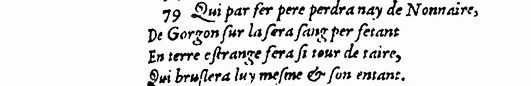 79 Qui par fer pere perdra nay de Nonnaire,
De Gorgon sur la sera sang perfetant
En terre estrange fera si tour de taire,
Qui bruslera luy mesme & son entant.